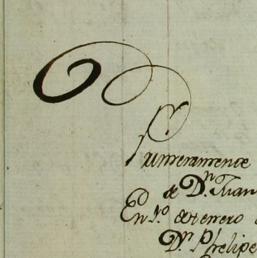 Primeramente
de D.ⁿ Juan
En 1.º de henero
D.ⁿ Phelipe